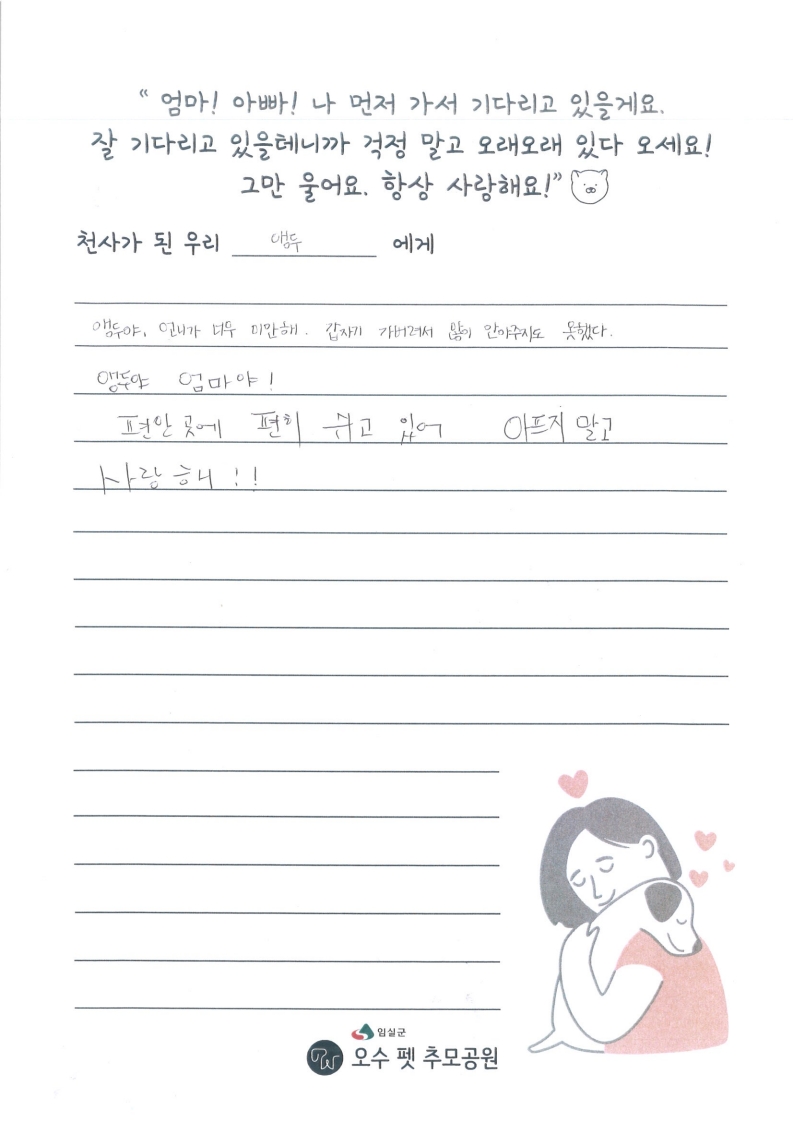 “ 엄마! 아빠! 나 먼저 가서 기다리고 있을게요.
잘 기다리고 있을테니까 걱정 말고 오래오래 있다 오세요!
그만 울어요. 항상 사랑해요!”
천사가 된 우리 앵두 에게
앵두야, 언니가 너무 미안해. 갑자기 가버려서 많이 안아주지도 못했다.
앵두야 엄마야!
편안 곳에 편히 쉬고 있어 아프지 말고
사랑해!!
임실군
오수 펫 추모공원